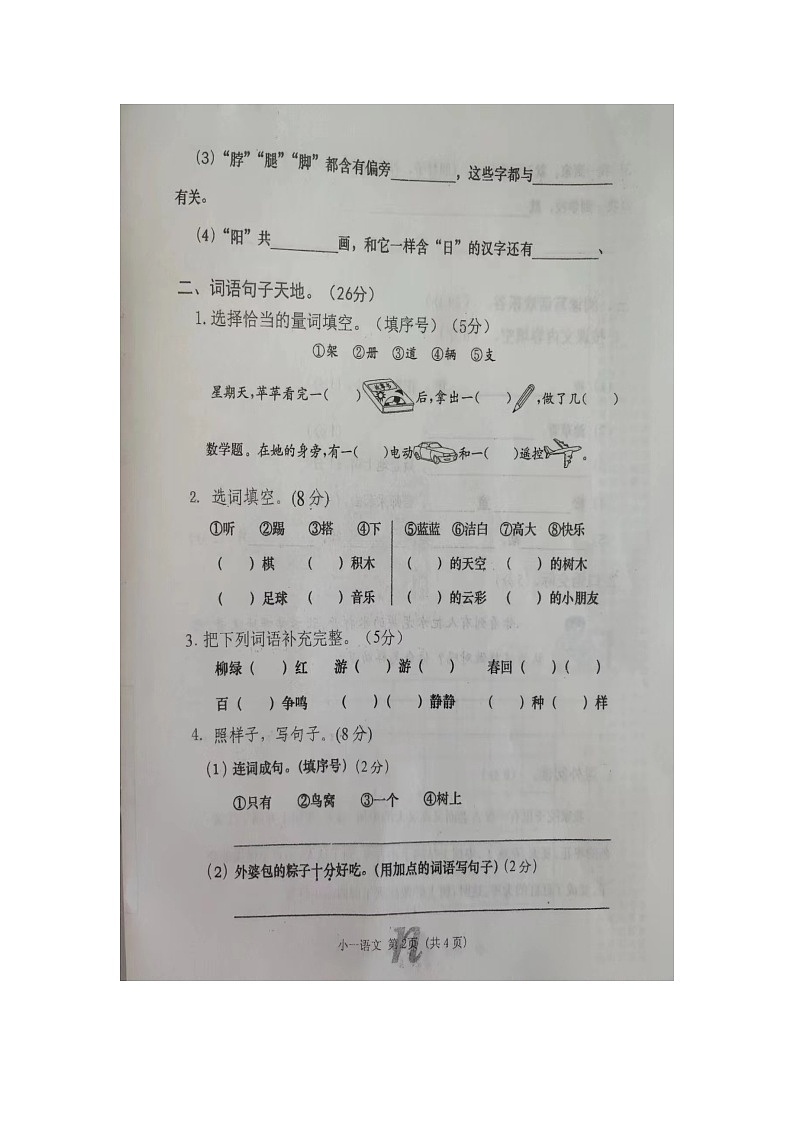 (3)“脖”“腿”“脚”都含有偏旁_________，这些字都与___________
有关。
(4)“阳”共_________画，和它一样含“日”的汉字还有_________、
二、词语句子天地。（26分）
1.选择恰当的量词填空。（填序号）（5分）
①架 ②册 ③道 ④辆 ⑤支
星期天,苹苹看完一( )后,拿出一( ),做了几( )
数学题。在她的身旁,有一( )电动和一( )遥控。
2. 选词填空。(8分)
①听 ②踢 ③搭 ④下 ⑤蓝蓝 ⑥洁白 ⑦高大 ⑧快乐
( )棋 ( )积木 ( )的天空 ( )的树木
( )足球 ( )音乐 ( )的云彩 ( )的小朋友
3.把下列词语补充完整。（5分）
柳绿( )红 游( )游( ) 春回( )( )
百( )争鸣 ( )( )静静 ( )种( )样
4. 照样子，写句子。(8分)
(1)连词成句。(填序号)(2分)
①只有 ②鸟窝 ③一个 ④树上
(2)外婆包的粽子十分好吃。(用加点的词语写句子)(2分)
小一语文 第2页 (共4页)